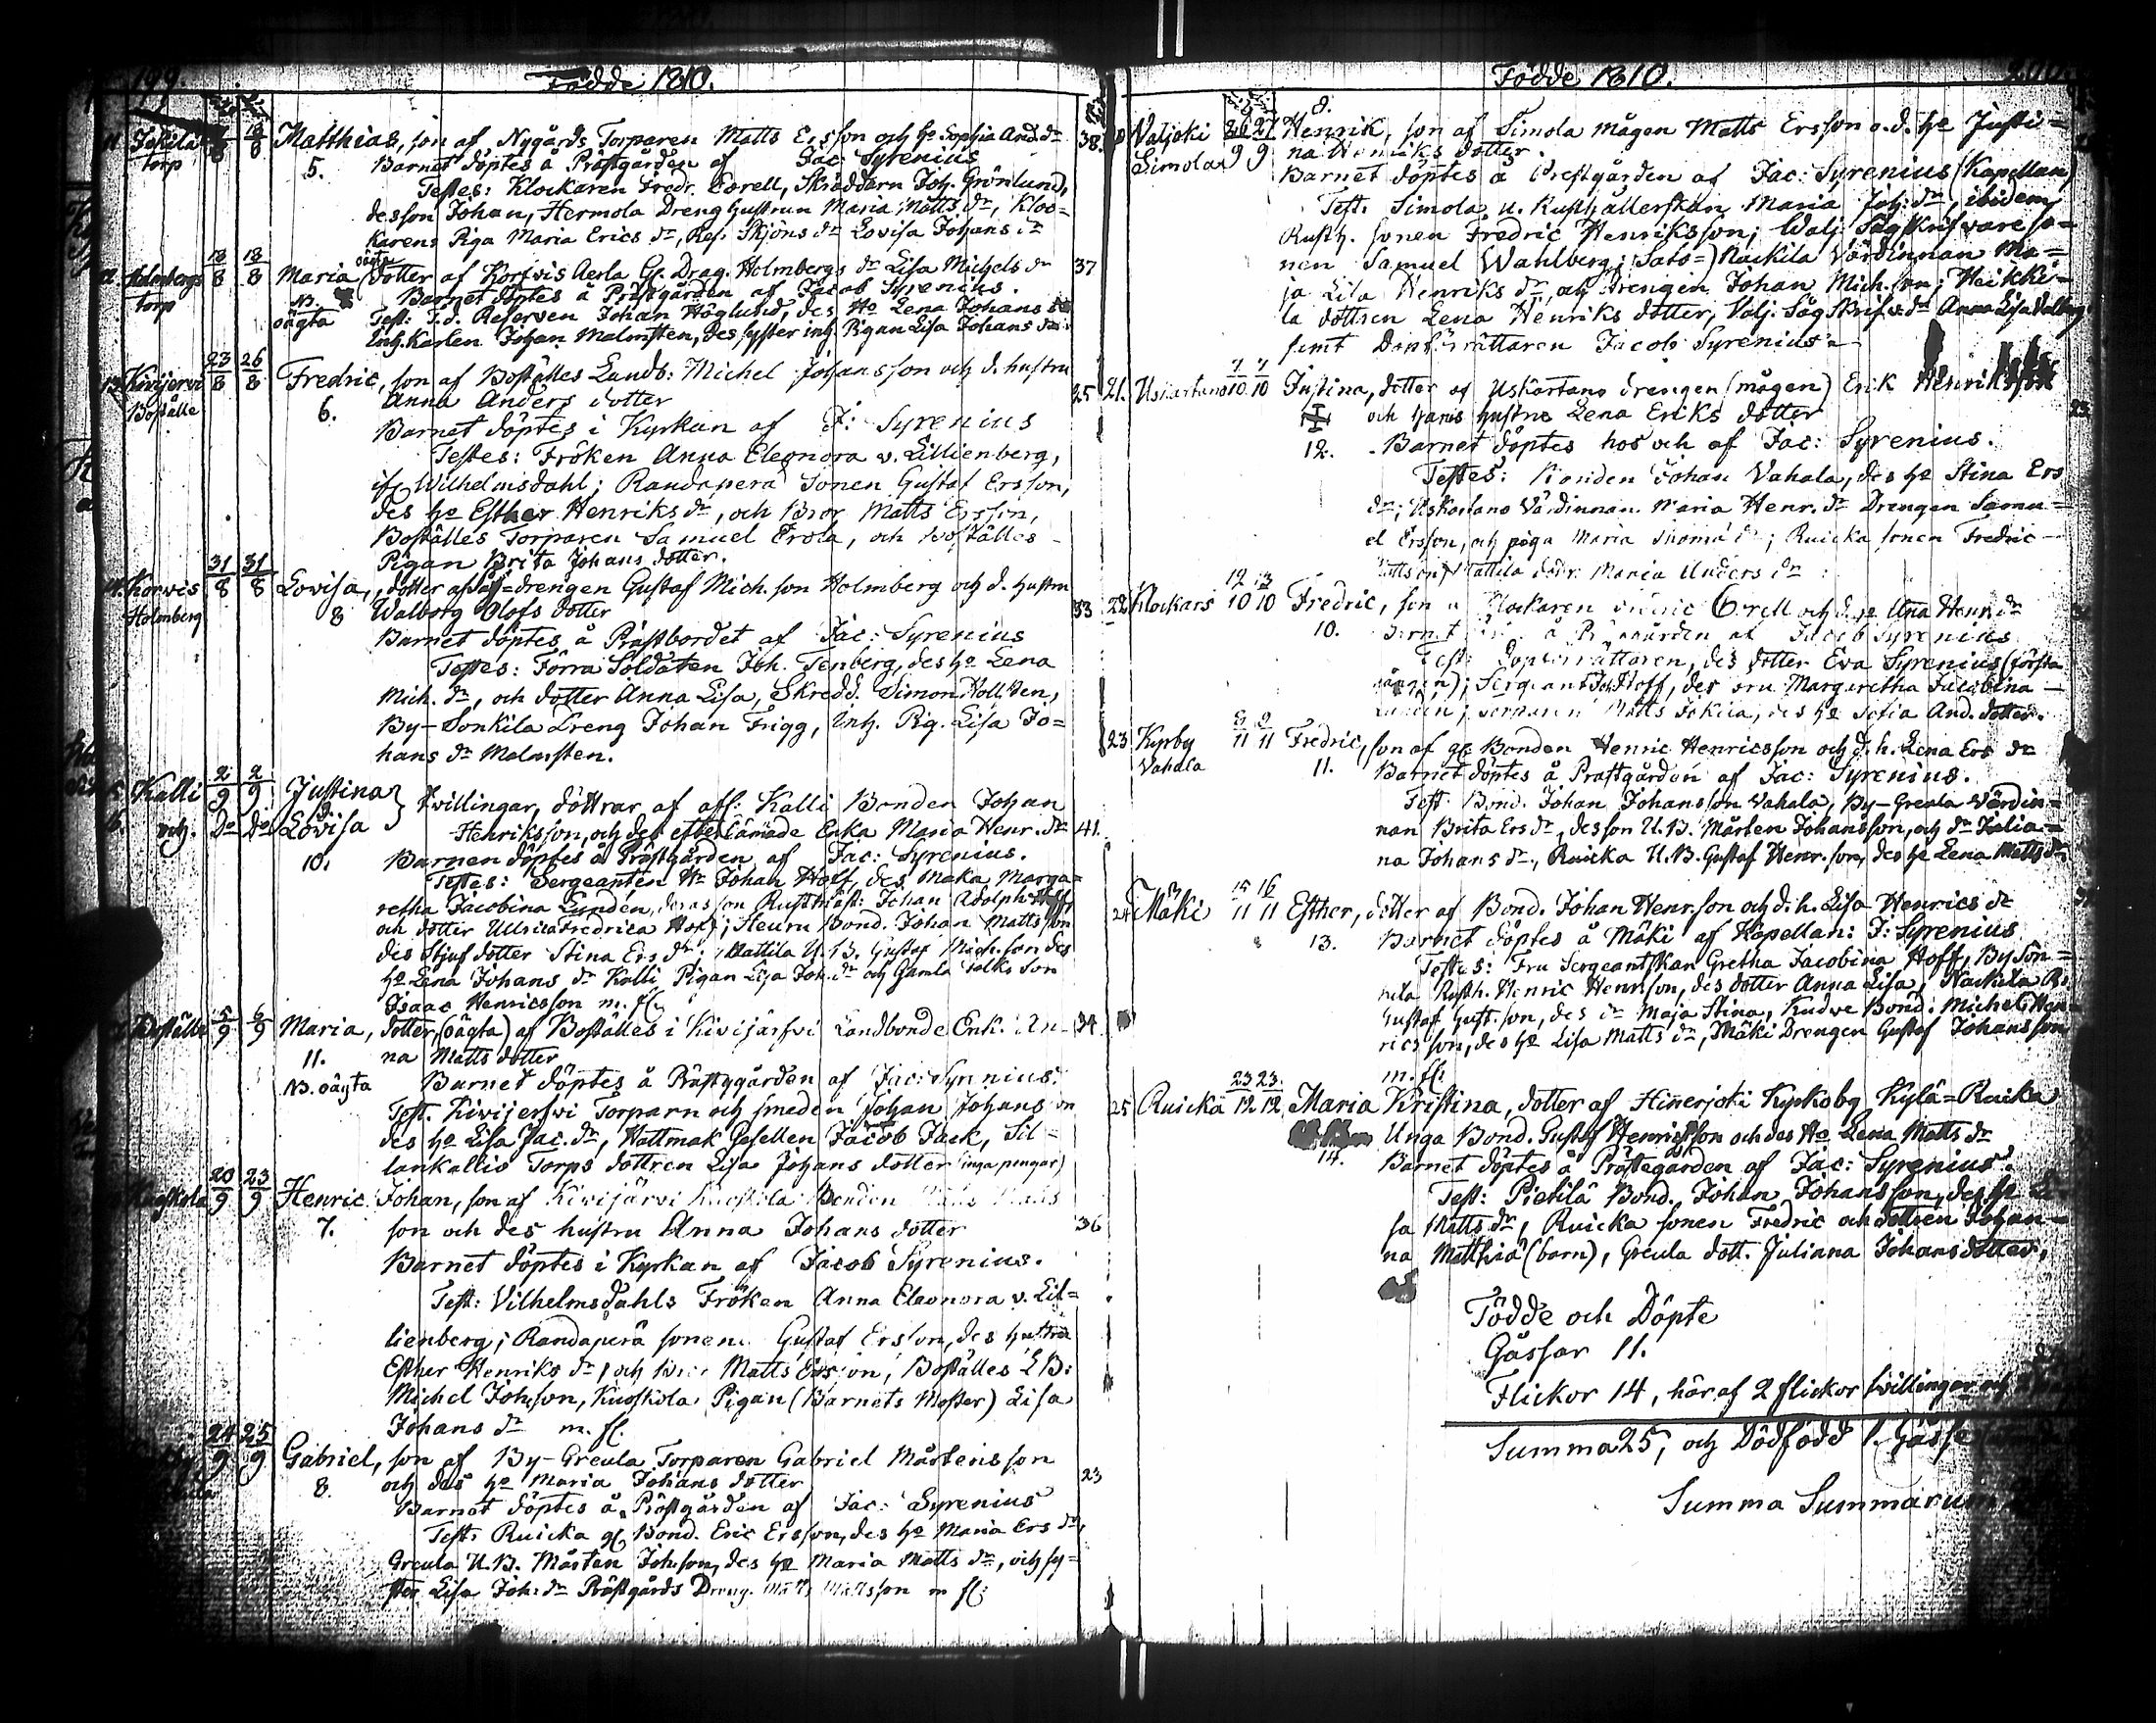 199.
Födde 1810.
11 Iskilä 8 18/8 Matthias, son af Nygårds Torparen Matts Ersson och Ho Sophia And. dr 38.
torp 5. Barnet döptes å Prästgården af Jac: Syrenius
Testes: Klockaren Fredr. Corell, Skräddarn Joh. Grönlund,
desson Johan, Hermola Dreng hustrun Maria Matts dr, Kloc=
karens Piga Maria Erics dr, Res. Skjöns dr Lovisa Johans dr
12 Holmbergs 18/8 18/8 Maria (oägta) dotter af Korfvis Aerla Gl. Drag. Holmbergs dr Lisa Michels dr 37
torp NB. Barnet döptes å Prästgården af Jacob Syrenius.
oägta Test: F.d. Reserven Johan Höglund, des Ho Lena Johans dr
Inh. Karlen Johan Malmsten, des syster inh. Pigan Lisa Johans dr
13. Kivijervi 23/8 26/8 Fredric, son af Boställes Landb: Michel Johansson och d. hustru 25
Boställe 6. Anna Anders dotter
Barnet döptes i Kyrkan af J: Syrenius
Testes: Fröken Anna Eleonora v. Lillienberg,
ifr. Wilhelmsdahl; Randapera Sonen Gustaf Ersson,
des ho Esther Henriks dr, och bror Matts Ersson,
Boställes Torparen Samuel Erola, och Boställes
Pigan Brita Johans dotter.
14. Korvis 31/8 31/8 Lovisa, dotter af drengen Gustaf Mich. son Holmberg och d. hustru
Holmberg 8 Walborg Olofs dotter 33
Barnet döptes å Prästbordet af Jac: Syrenius
Testes: Förra Soldaten Joh. Tenberg, des ho Lena
Mich. dr, och dotter Anna Lisa, Skredd. Simon Hollsten,
By-Sonkila Dreng Johan Frigg, Inh. Pig. Lisa Jo=
hans dr Malmsten.
15 Kalli 2/9 2/9 Justina } tvillingar, döttrar af afl: Kalli Bonden Johan
16. och Do Do Lovisa Henriksson, och des efterlämnade Enka Maria Henr. dr 41.
10. Barnen döptes å Prästgården af Jac: Syrenius.
Testes: Sergeanten Hr Johan Hoff, des maka Marga=
retha Jacobina Lundén, deras son Rustmäst: Johan Adolph Hoff,
och dotter Ullrica Fredrica Hoff; Heuru Bond. Johan Matts son
des Stjuf dotter Stina Ers dr; Mattila U. B. Gustaf Mich. son des
ho Lena Johans dr Kalli Pigan Lisa Joh. dr och Gamla folks Son
Isaac Henricsson m. fl.
Boställe 5/9 6/9 Maria, dotter (oägta) af Boställes i Kivijärfvi Landbonde Enk. An= 34
11. na Matts dotter
NB. oägta Barnet döptes å Prästgården af Jac: Syrenius.
Test. Kivijerfvi Torparn och smeden Johan Johans son
des ho Lisa Jac. dr, Hattmak Gesellen Jacob Jack, Sil=
lankallio Torps dottren Lisa Johans dotter (inga pengar)
Kuoskola 20/9 23/9 Henric Johan, son af Kivijärvi Bonden
7. son och des hustru Anna Johans dotter 36
Barnet döptes i Kyrkan af Jacob Syrenius.
Test: Vilhelmsdahls Fröken Anna Eleonora v. Lil=
lienberg; Randaperä sonen Gustaf Ersson, des hustru
Esther Henriks dr, och bror Matts Ersson, Boställes L B:
Michel Johsson, Kuoskola Pigan (Barnets Moster) Lisa
Johans dr m. fl.
24/9 25/9 Gabriel, son af By-Greula Torparen Gabriel Mårtensson
8. och des ho Maria Johans dotter 23
Barnet döptes å Prästgården af Jac: Syrenius
Test. Ruicka gl. Bond. Eric Ersson, des ho Maria Ers dr,
Greula U.B. Mårten Johsson, des ho Maria Matts dr, och sy=
ster Lisa Joh: dr Prästgårds Dreng. Matts Mattsson m fl:
200
Födde 1810.
Valjoki 26/9 27/9 Henrik, son af Simola mågen Matts Ersson o. d. ho Justi=
Simola 8. na Henriks dotter.
Barnet döptes å Prestgården af Jac: Syrenius (Kapellan)
Test. Simola u. Rusthållerskan Maria Joh: dr, ibidem
Rusth. sonen Fredric Henriksson; Walj. Sågskrifvare so=
nen Samuel Wahlberg; (Sato=) Rackila Värdinnan Ma=
ja Lisa Henriks dr, och drengen Johan Mich. son; Heikki=
la dottren Lena Henriks dotter, Valj. Såg Skrifv. dr Anna Lisa Valberg
samt Dopförrättaren Jacob Syrenius
21. Uskartano 7/10 7/10 Justina, dotter af Uskartano drengen (mågen) Erik Henriksson
och hans hustru Lena Eriks dotter
12. Barnet döptes hos och af Jac: Syrenius.
Testes: Bonden Johan Vahala, des ho Stina Ers
dr; Uskartano Värdinnan Maria Henr. dr Drengen Samu=
el Ersson, och piga Maria Thomæ dr; Ruicka sonen Fredric
Mattsson, Mattila dotr. Maria Anders dr
22 Klockars 12/10 13/10 Fredric, son af Klockaren Fredric Corell och d. ho Henr. dr
10. Barnet döptes å Prästgården af Jacob Syrenius
Test: Dopförrättaren, des dotter Eva Syrenius (första
gången); Sergeant Joh. Hoff, des fru Margaretha Jacobina
Lundén; Torparen Matts Iskilä, des ho Sofia And. dotter.
23 Kyrby 11 11 Fredric, son af gl. Bonden Henric Henricsson och d. h. Lena Ers dr
Vahala 11. Barnet döptes å Prästgården af Jac: Syrenius.
Test. Bond. Johan Johansson Vahala, By-Greula Värdin=
nan Brita Ers dr, desson U. B. Mårten Johansson, och dr Julia=
na Johans dr, Ruicka U. B. Gustaf Henr. son, des ho Lena Matts dr
24 Mäki 15/11 16/11 Esther, dotter af Bond. Johan Henr. son och d. h. Lisa Henrics dr
13. Barnet döptes å Mäki af Kapellan: J: Syrenius
Testes: Fru Sergeantskan Gretha Jacobina Hoff, By Son=
kila Rusth. Henric Henrsson, des dotter Anna Lisa, Rackila
Gustaf Gust. son, des dr Maja Stina, Kudve Bond. Michel Hen=
rics son, des ho Lisa Matts dr, Mäki Drengen Gustaf Johansson
m. fl.
25 Ruicka 23/12 23/12 Maria Kristina, dotter af Hinnerjoki Kyrkoby Kylä=Ruicka
Unga Bond. Gustaf Henricsson och des Ho Lena Matts dr
14. Barnet döptes å Prästegården af Jac: Syrenius.
Test: Pietilä Bond. Johan Johansson, des ho Li=
sa Matts dr, Ruicka sonen Fredric och dottren Johan=
na Matthiæ (barn), Greula dott. Juliana Johans dotter,
Födde och Döpte
Gåssar 11.
Flickor 14, häraf 2 flickor tvillingar
Summa 25, och Dödfödd 1. Gåsse
Summa Summarum